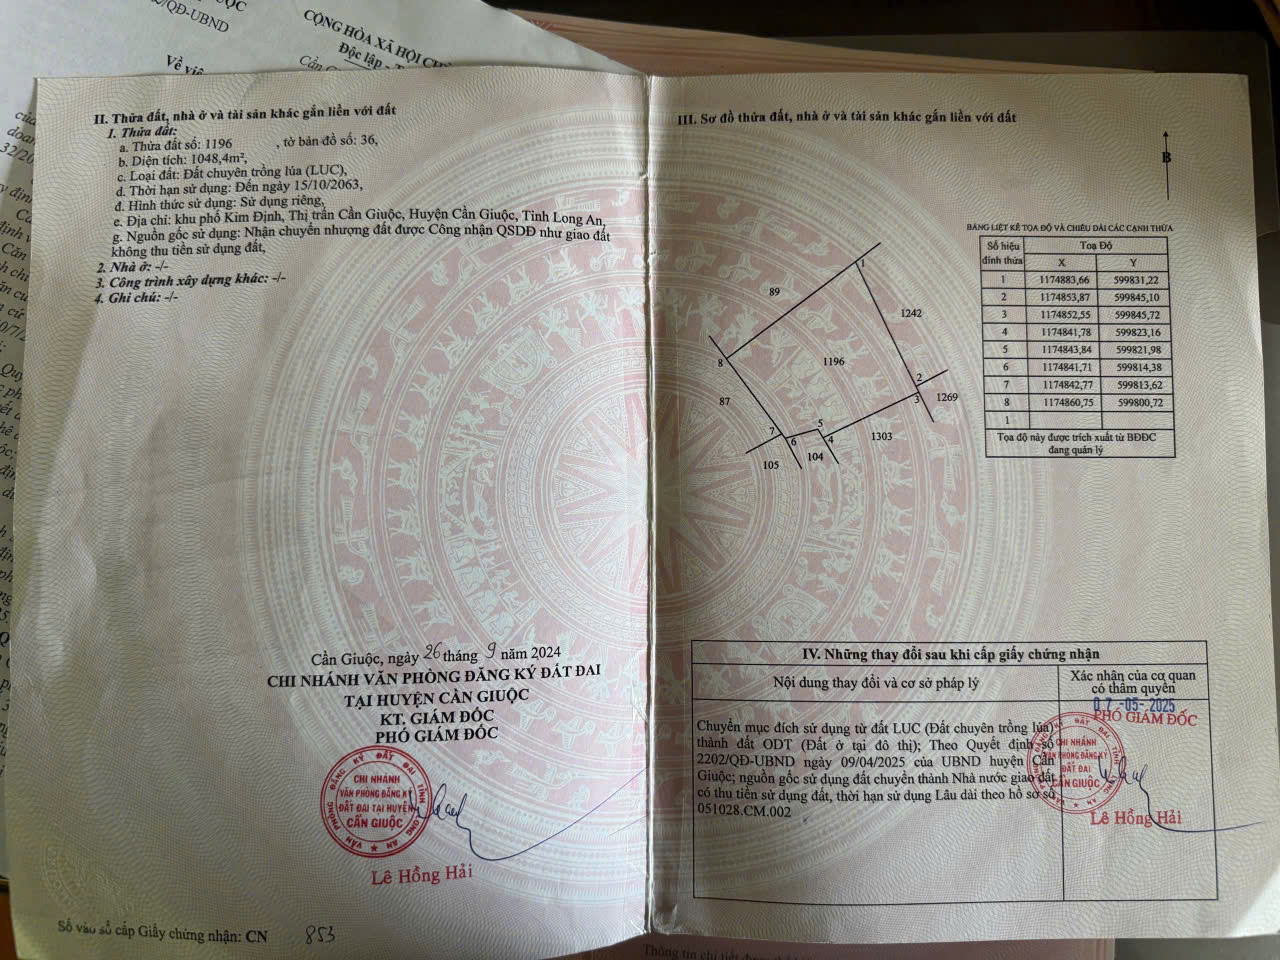 /QĐ-UBND
CỘNG HÒA XÃ HỘI
Độc lập - T
Về việ
II. Thửa đất, nhà ở và tài sản khác gắn liền với đất
1. Thửa đất:
a. Thửa đất số: 1196 , tờ bản đồ số: 36,
b. Diện tích: 1048,4m²,
c. Loại đất: Đất chuyên trồng lúa (LUC),
d. Thời hạn sử dụng: Đến ngày 15/10/2063,
đ. Hình thức sử dụng: Sử dụng riêng,
e. Địa chỉ: khu phố Kim Định, Thị trấn Cần Giuộc, Huyện Cần Giuộc, Tỉnh Long An,
g. Nguồn gốc sử dụng: Nhận chuyển nhượng đất được Công nhận QSDĐ như giao đất
không thu tiền sử dụng đất,
2. Nhà ở: -/-
3. Công trình xây dựng khác: -/-
4. Ghi chú: -/-
Cần Giuộc, ngày 26 tháng 9 năm 2024
CHI NHÁNH VĂN PHÒNG ĐĂNG KÝ ĐẤT ĐAI
TẠI HUYỆN CẦN GIUỘC
KT. GIÁM ĐỐC
PHÓ GIÁM ĐỐC
VĂN PHÒNG ĐĂNG KÝ ĐẤT ĐAI TỈNH LONG AN
CHI NHÁNH
VĂN PHÒNG ĐĂNG KÝ
ĐẤT ĐAI TẠI HUYỆN
CẦN GIUỘC
Lê Hồng Hải
Số vào sổ cấp Giấy chứng nhận: CN 853
III. Sơ đồ thửa đất, nhà ở và tài sản khác gắn liền với đất
B
1
89
1242
1196
8
2
3
1269
87
5
7
6
4
1303
104
105
BẢNG LIỆT KÊ TỌA ĐỘ VÀ CHIỀU DÀI CÁC CẠNH THỬA
Số hiệu đỉnh thửa Toạ Độ
X Y
1 1174883,66 599831,22
2 1174853,87 599845,10
3 1174852,55 599845,72
4 1174841,78 599823,16
5 1174843,84 599821,98
6 1174841,71 599814,38
7 1174842,77 599813,62
8 1174860,75 599800,72
1
Tọa độ này được trích xuất từ BĐĐC
đang quản lý
IV. Những thay đổi sau khi cấp giấy chứng nhận
Nội dung thay đổi và cơ sở pháp lý
Xác nhận của cơ quan
có thẩm quyền
Chuyển mục đích sử dụng từ đất LUC (Đất chuyên trồng lúa)
thành đất ODT (Đất ở tại đô thị); Theo Quyết định số
2202/QĐ-UBND ngày 09/04/2025 của UBND huyện Cần
Giuộc; nguồn gốc sử dụng đất chuyển thành Nhà nước giao đất
có thu tiền sử dụng đất, thời hạn sử dụng Lâu dài theo hồ sơ số
051028.CM.002
07-05-2025
PHÓ GIÁM ĐỐC
CHI NHÁNH
VĂN PHÒNG ĐĂNG KÝ
ĐẤT ĐAI
CẦN GIUỘC
Lê Hồng Hải